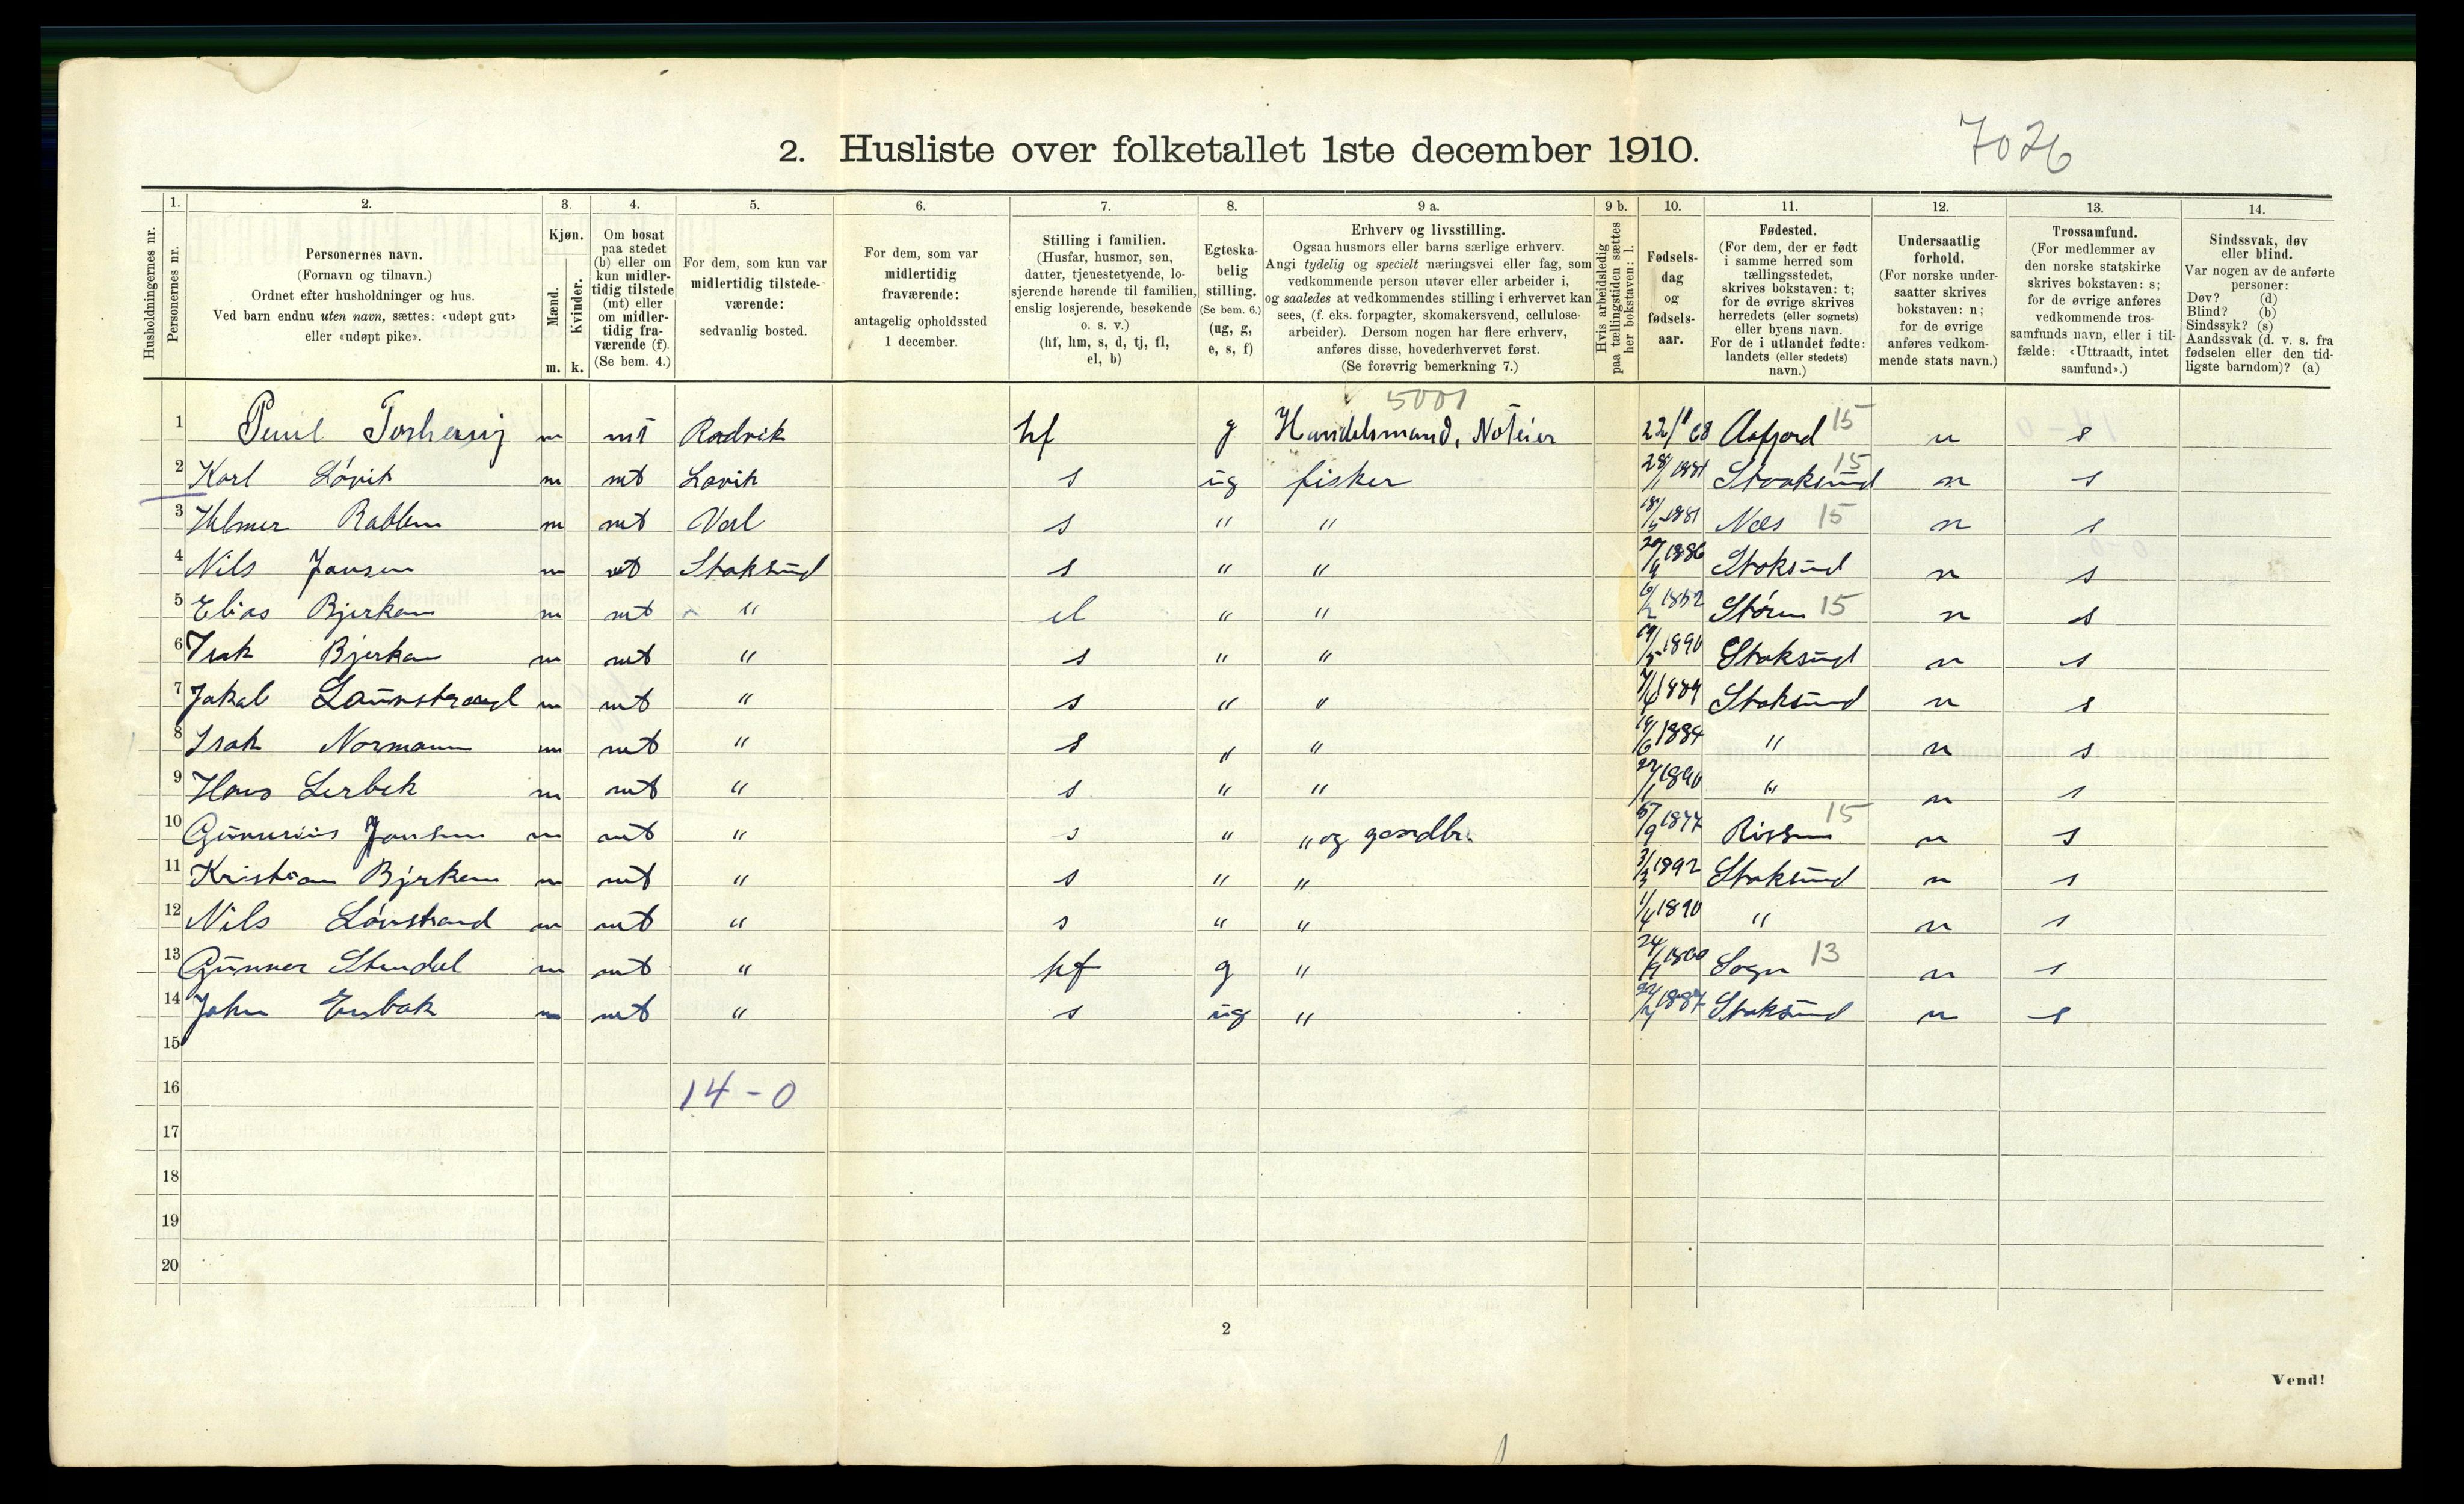 7026
2. Husliste over folketallet 1ste december 1910.
1. 2. 3. 4. 5. 6. 7. 8. 9 a. 9 b. 10. 11. 12. 13. 14.
Husholdningernes nr.
Personernes nr.
Personernes navn.
(Fornavn og tilnavn.)
Ordnet efter husholdninger og hus.
Ved barn endnu uten navn, sættes: «udøpt gut»
eller «udøpt pike».
Kjøn.
Mænd.
Kvinder.
m. k.
Om bosat
paa stedet
(b) eller om
kun midler-
tidig tilstede
(mt) eller
om midler-
tidig fra-
værende (f).
(Se bem. 4.)
For dem, som kun var
midlertidig tilstede-
værende:
sedvanlig bosted.
For dem, som var
midlertidig
fraværende:
antagelig opholdssted
1 december.
Stilling i familien.
(Husfar, husmor, søn,
datter, tjenestetyende, lo-
sjerende hørende til familien,
enslig losjerende, besøkende
o. s. v.)
(hf, hm, s, d, tj, fl,
el, b)
Egteska-
belig
stilling.
(Se bem. 6.)
(ug, g,
e, s, f)
Erhverv og livsstilling.
Ogsaa husmors eller barns særlige erhverv.
Angi tydelig og specielt næringsvei eller fag, som
vedkommende person utøver eller arbeider i,
og saaledes at vedkommendes stilling i erhvervet kan
sees, (f. eks. forpagter, skomakersvend, cellulose-
arbeider). Dersom nogen har flere erhverv,
anføres disse, hovederhvervet først.
(Se forøvrig bemerkning 7.)
Hvis arbeidsledig
paa tællingstiden sættes
her bokstaven: l.
Fødsels-
dag
og
fødsels-
aar.
Fødested.
(For dem, der er født
i samme herred som
tællingsstedet,
skrives bokstaven: t;
for de øvrige skrives
herredets (eller sognets)
eller byens navn.
For de i utlandet fødte:
landets (eller stedets)
navn.)
Undersaatlig
forhold.
(For norske under-
saatter skrives
bokstaven: n;
for de øvrige
anføres vedkom-
mende stats navn.)
Trossamfund.
(For medlemmer av
den norske statskirke
skrives bokstaven: s;
for de øvrige anføres
vedkommende tros-
samfunds navn, eller i til-
fælde: «Uttraadt, intet
samfund».)
Sindssvak, døv
eller blind.
Var nogen av de anførte
personer:
Døv? (d)
Blind? (b)
Sindssyk? (s)
Aandssvak (d. v. s. fra
fødselen eller den tid-
ligste barndom)? (a)
5001
1 m mt Radvik hf g Handelsmand, Noteier 22/11 68 Aafjord 15 n s
2 Karl Løvik m mt Lavik s ug fisker 28/1 1881 Stoaksund 15 n s
3 Hilmer m mt s " " 1881 Næs 15 n s
4 Nils Jansen m mt Stoksund s " " 1886 Stoksund n s
5 Elias Bjerkan m mt " el " " 1852 Støren 15 n s
6 Isak Bjerkan m mt " s " " 1890 Stoksund n s
7 Jakob m mt " s " " Stoksund n s
8 Isak Normann m mt " s " " 1884 " n s
9 Hans Lerbek m mt " s " " 1890 " n s
10 m mt " s " " og gaardbr. 1877 Rissen 15 n s
11 Kristian m mt " s " " 3/3 1892 Stoksund n s
12 Nils Lønstrand m mt " s " " 1/4 1890 " n s
13 Gunnar Stendal m mt " hf g " Sogn 13 n s
14 John m mt " s ug " 1887 Stoksund n s
15
16 14 - 0
17
18
19
20
2
Vend!